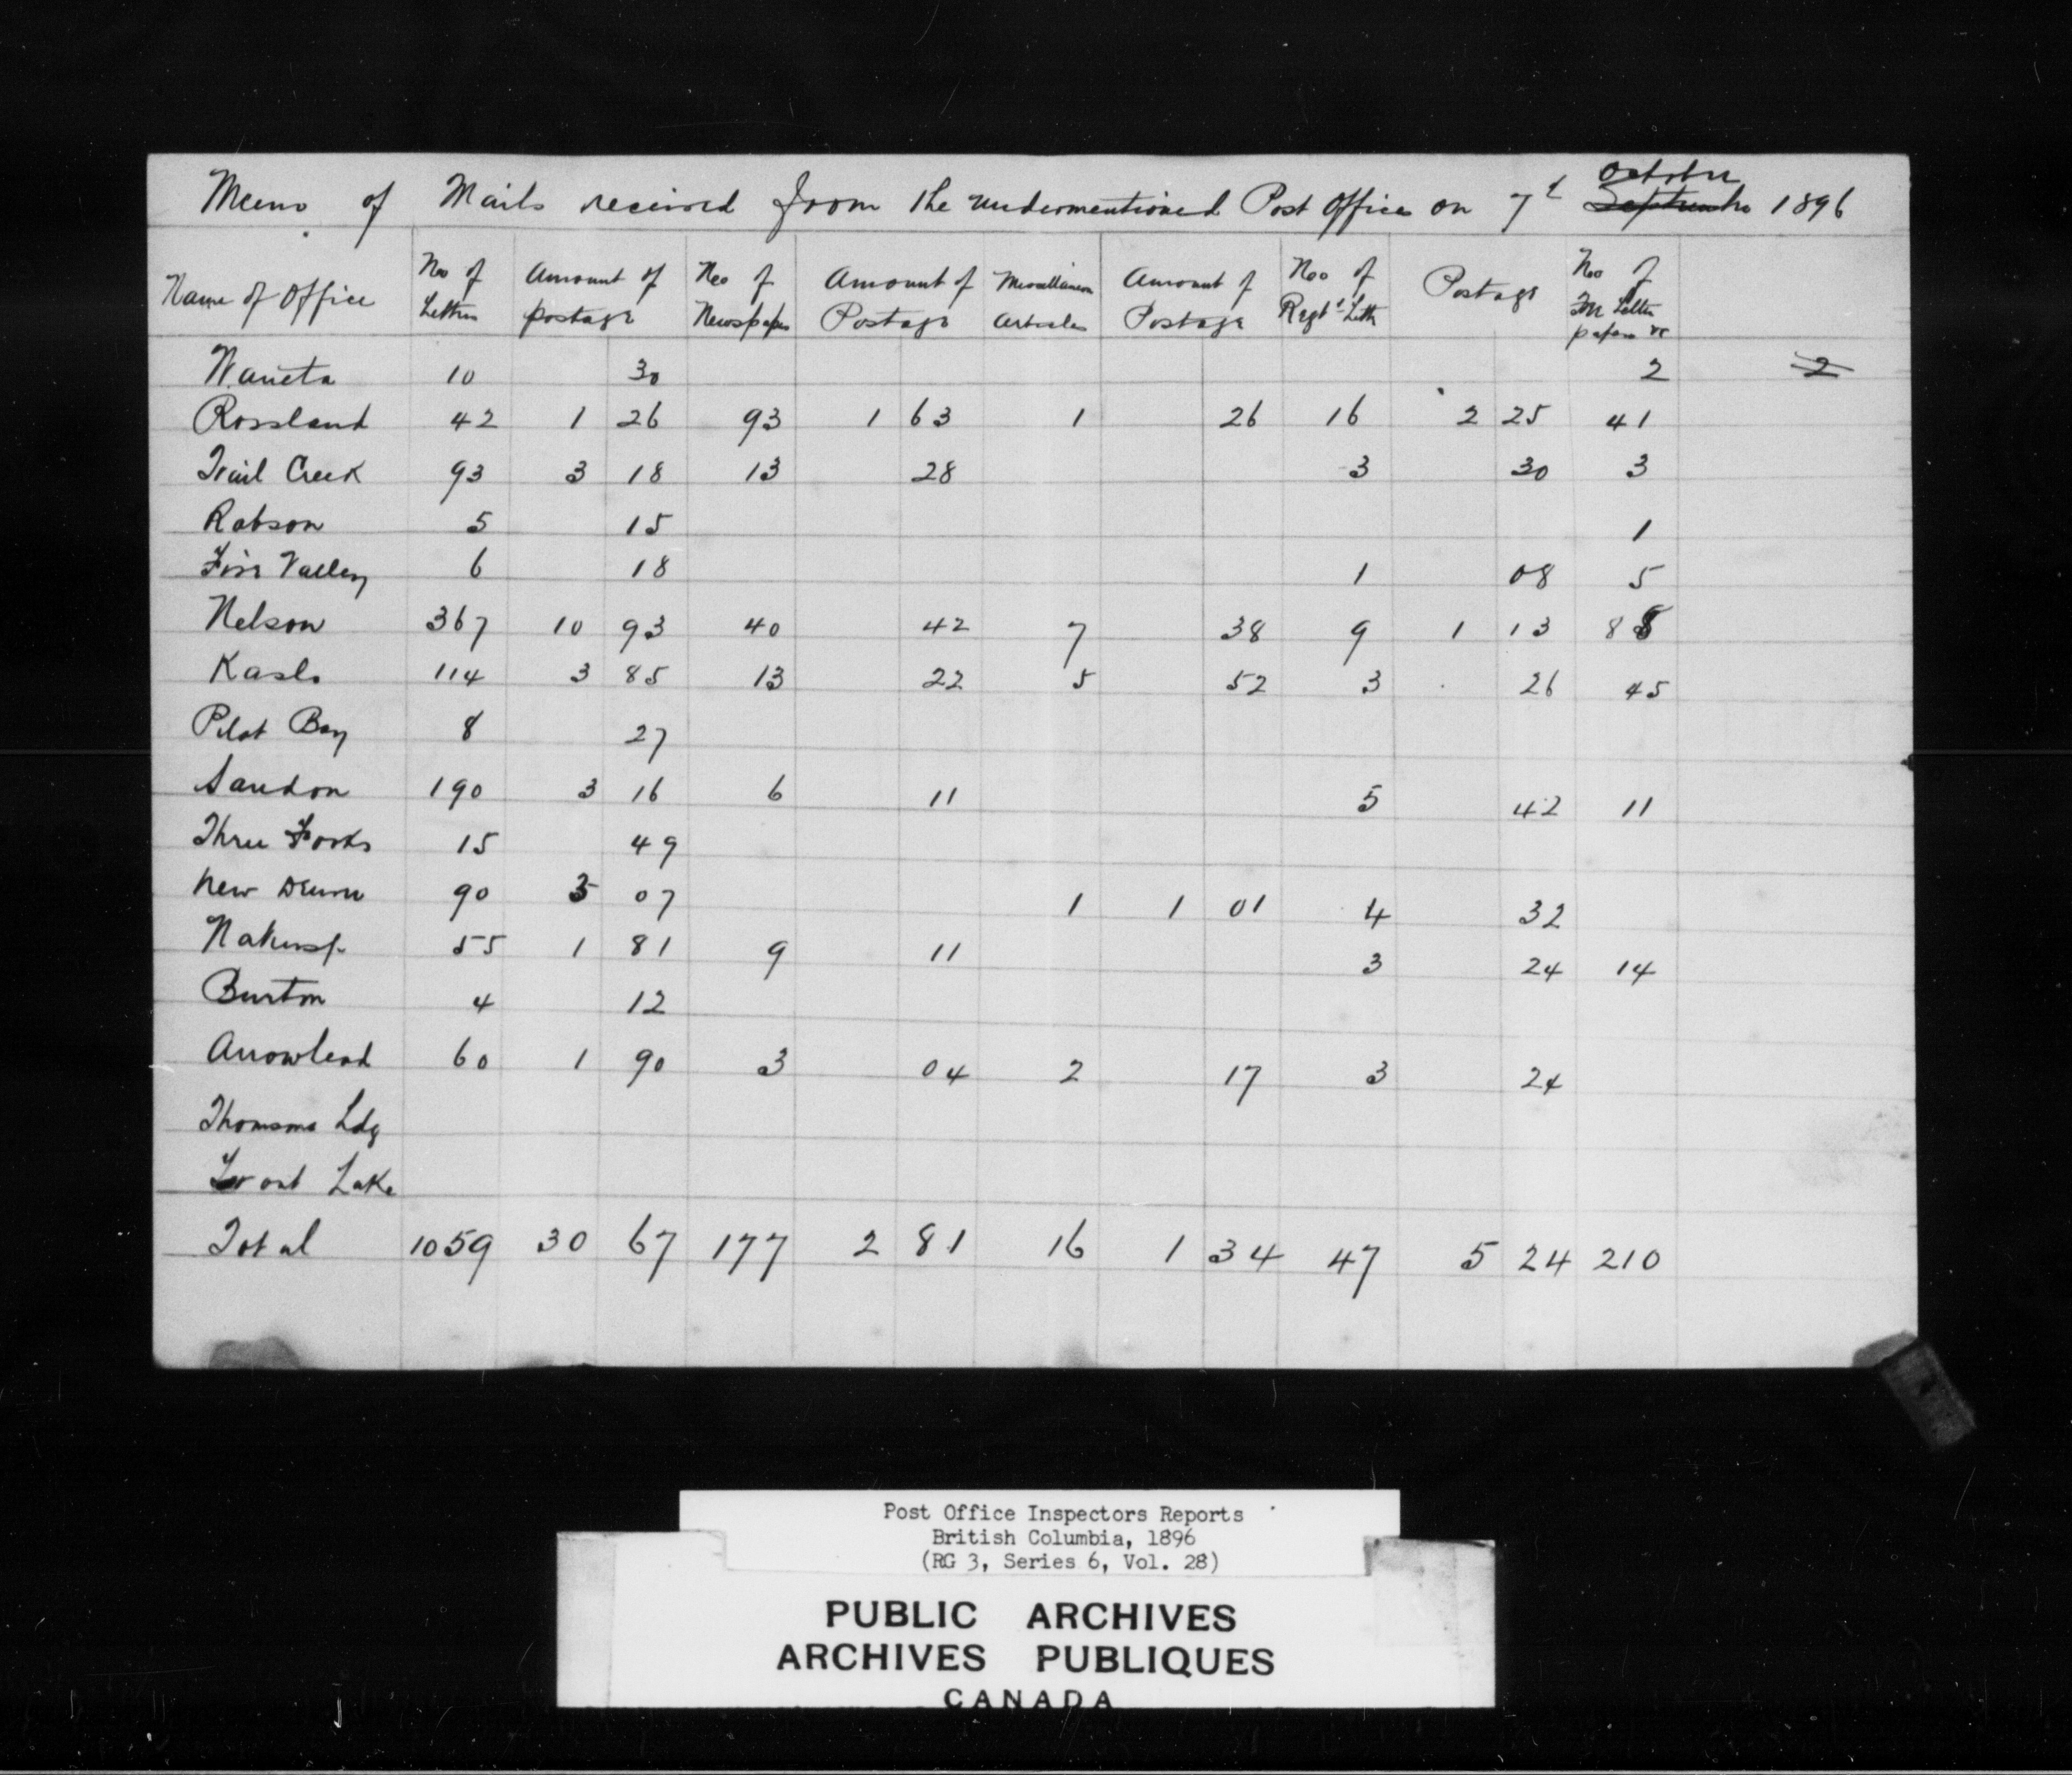 Memo of Mails received from the undermentioned Post Offices on 7th September October 1896
Name of Office No of Letters Amount of postage No of Newspapers Amount of Postage Miscellaneous Articles Amount of Postage Noo of Regt Letts Postage No of Letter papers &c
Waneta 10 30 2 2
Rossland 42 1 26 93 1 63 1 26 16 2 25 41
Trail Creek 93 3 18 13 28 3 30 3
Robson 5 15 1
Fire Valley 6 18 1 08 5
Nelson 367 10 93 40 42 7 38 9 1 13 88
Kaslo 114 3 85 13 22 5 52 3 26 45
Pilot Bay 8 27
Sandon 190 3 16 6 11 5 42 11
Three Forks 15 49
New Denver 90 3 07 1 1 01 4 32
Nakusp 55 1 81 9 11 3 24 14
Burton 4 12
Arrowhead 60 1 90 3 04 2 17 3 24
Thomsons Ldg
Trout Lake
Total 1059 30 67 177 2 81 16 1 34 47 5 24 210
Post Office Inspectors Reports
British Columbia, 1896
(RG 3, Series 6, Vol. 28)
PUBLIC ARCHIVES
ARCHIVES PUBLIQUES
CANADA